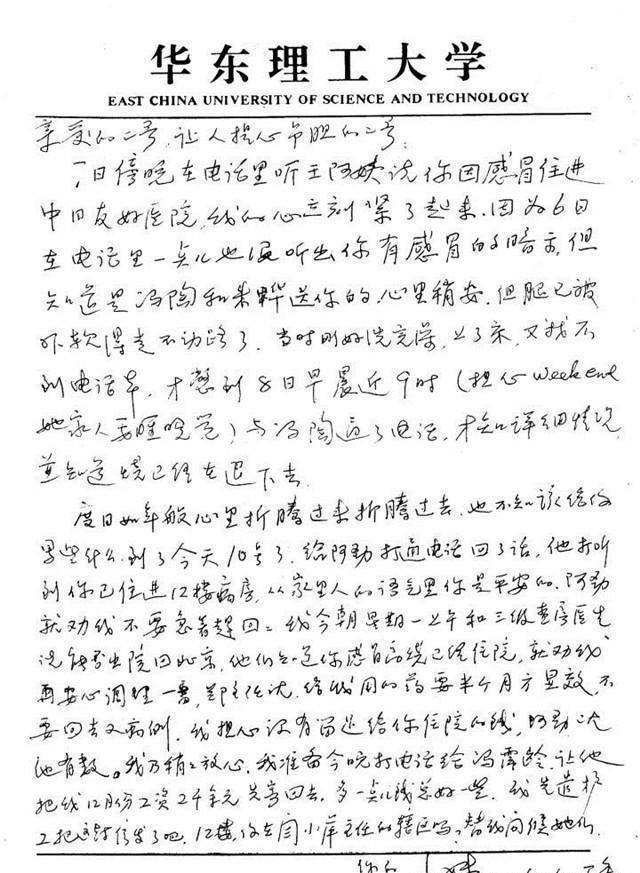 华东理工大学
EAST CHINA UNIVERSITY OF SCIENCE AND TECHNOLOGY
享受的二号,让人提心吊胆的二号:
7日傍晚在电话里听王阿姨说你因感冒住进
中日友好医院,我的心立刻紧了起来.因为6日
在电话里一点儿也没听出你有感冒的暗示,但
知道是冯陶和来晔送你的,心里稍安.但腿已被
吓软得走不动路了.当时刚好洗完澡,上了床,又找不
到电话本,才想到8日早晨近9时(担心weekend
她家人要睡晚觉)与冯陶通了电话,才知详细情况
并知道烧已经在退下去.
度日如年般心里折腾过来折腾过去.也不知该给你
写些什么.到了今天10号了.给阿劲打通电话回了话,他打听
到你已住进12楼病房,从家里人的语气里你是平安的.阿劲
就劝我不要急着赶回.我今朝星期一上午和三级查房医生
说能否出院回北京,他们知道你患有高烧已经住院,就劝我
再安心调理一番,给我用的药要半个月方显效,不
要回去.我担心没有留过给你住院的钱,阿劲
他有数。我方稍稍放心.我准备今晚打电话给冯霭龄,让他
把我12月份工资2千余元先寄回去.多一点儿钱总好一些.我先
把这封信发了吧.12楼,你在小萍主任的辖区吗?替我问候她们.